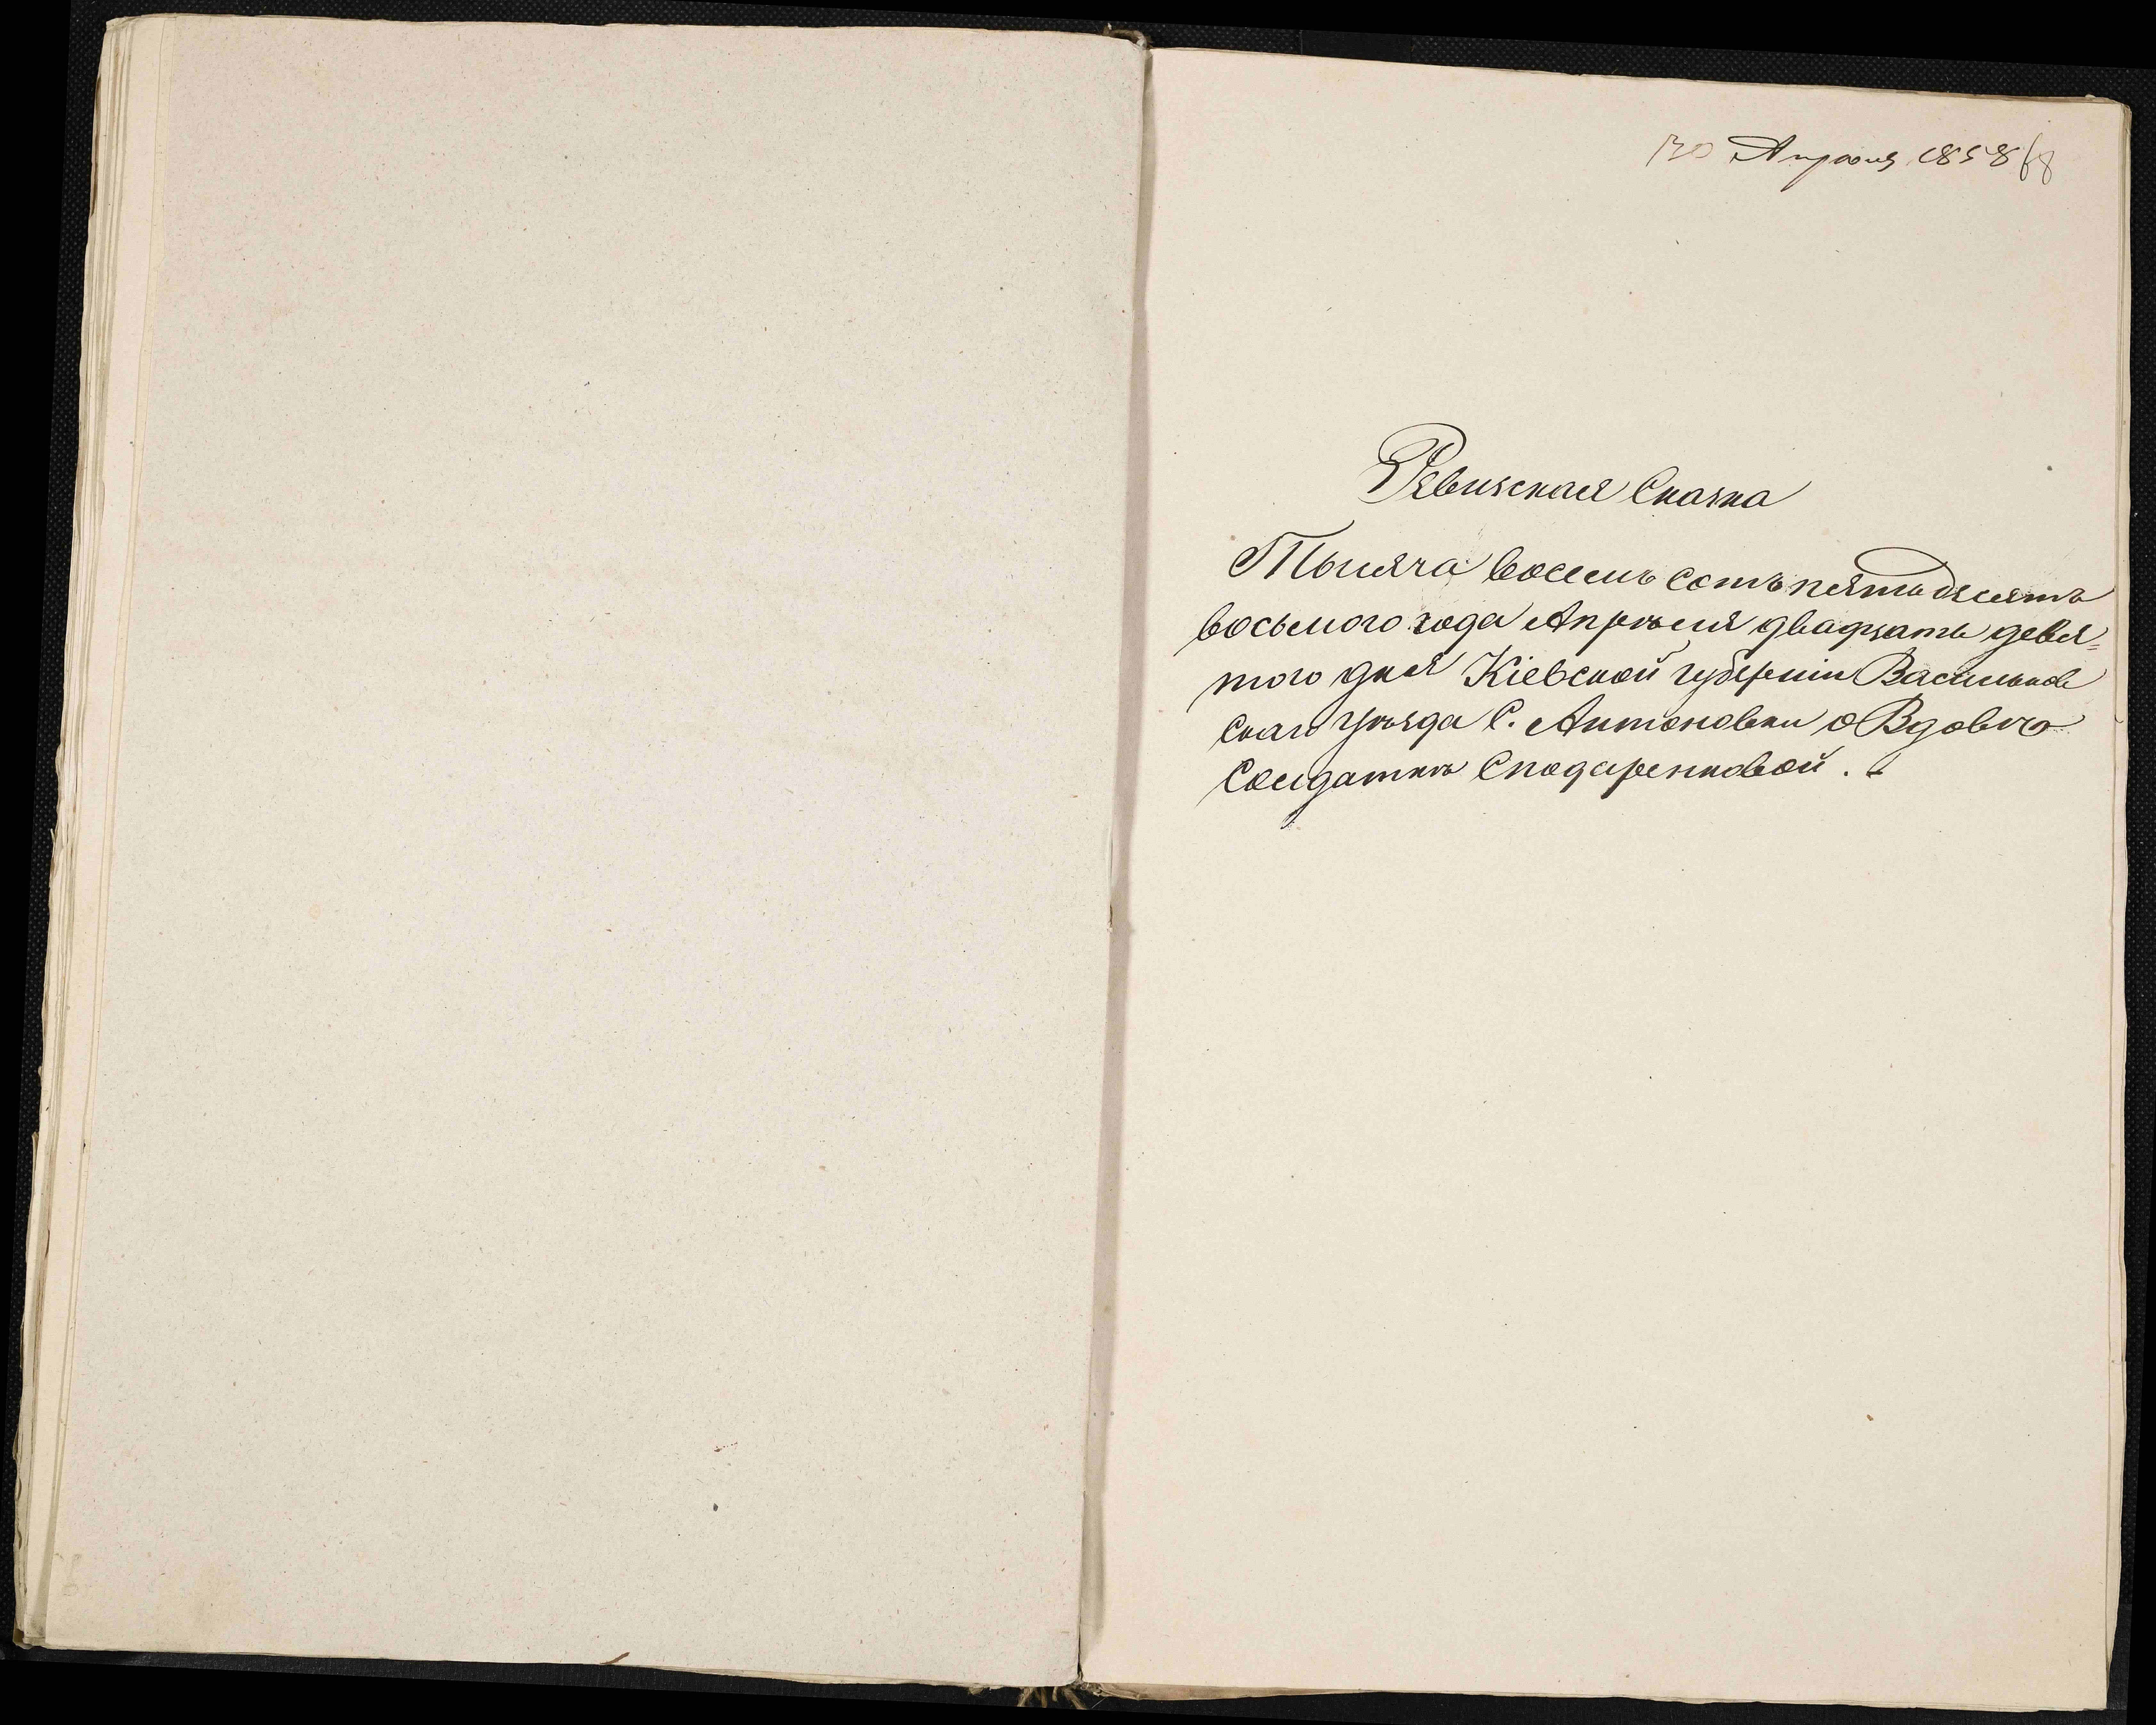 30 Апреля 1858 68
Ревизская Сказка
Тысяча восемь сотъ пятьдесятъ
восьмого года Апрѣля двадцать девя=
того дня Кіевской губерніи Васильков
скаго уѣзда С. Антоновки о Вдовѣ
Солдаткѣ Сподаренковой.